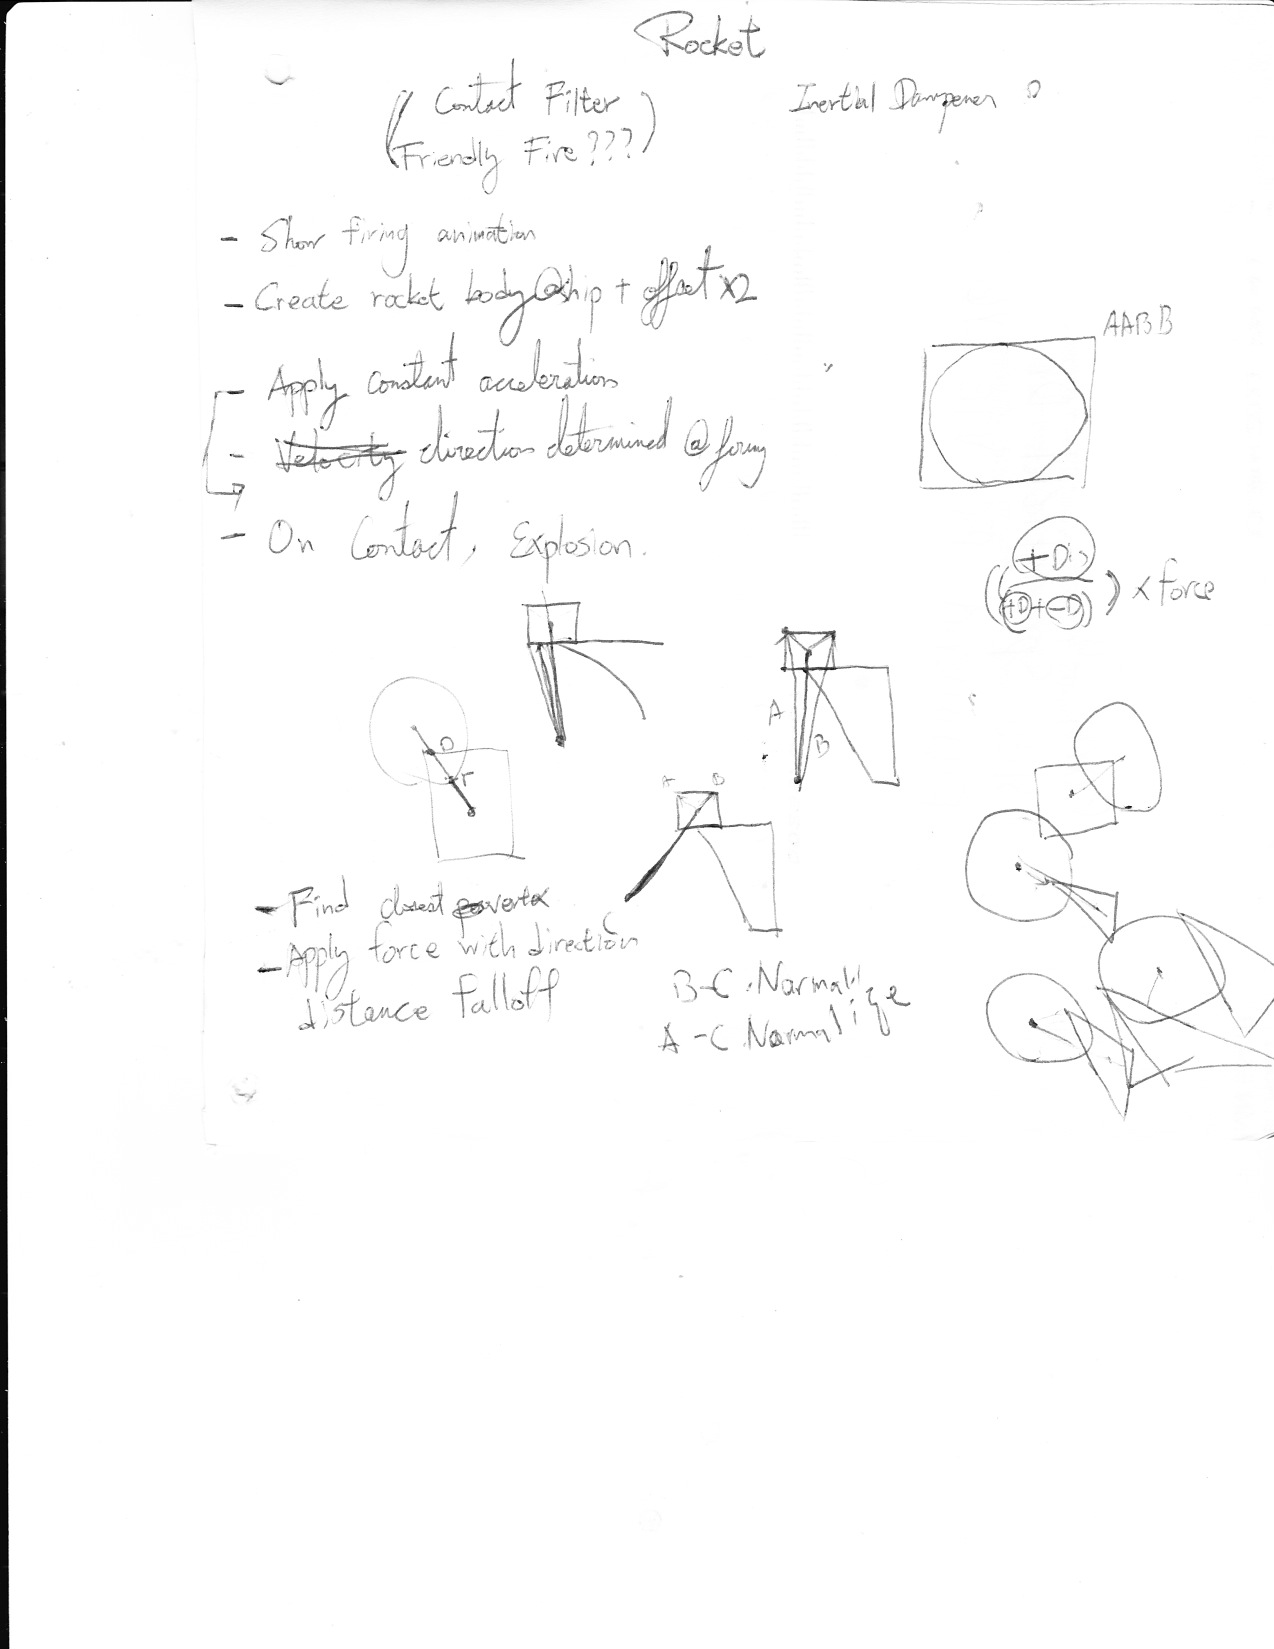 Rocket
( Contact Filter
Friendly Fire??? )
Inertial Dampener
- Show firing animation
- Create rocket body @ship + offset x2
AABB
- Apply constant acceleration
- Velocity direction determined @ firing
- On Contact, Explosion.
((+D
+D+-D)) x force
A
B
D
r
A B
- Find closest vertex
C
- Apply force with direction
distance falloff
B-C.Normalize
A-C.Normalize